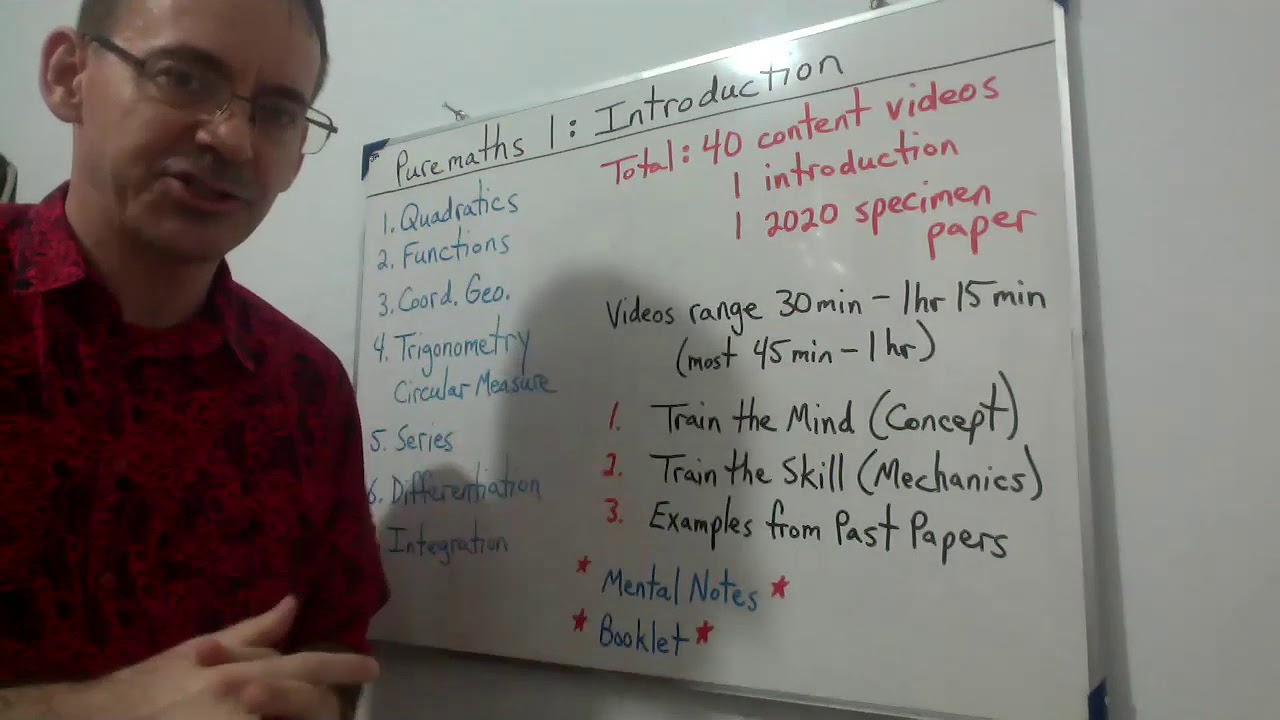 Puremaths 1: Introduction
1. Quadratics
2. Functions
3. Coord. Geo.
4. Trigonometry
Circular Measure
5. Series
6. Differentiation
Integration
Total: 40 content videos
1 introduction
1 2020 specimen
paper
Videos range 30min - 1hr 15min
(most 45min - 1hr)
1. Train the Mind (Concept)
2. Train the Skill (Mechanics)
3. Examples from Past Papers
* Mental Notes *
* Booklet *